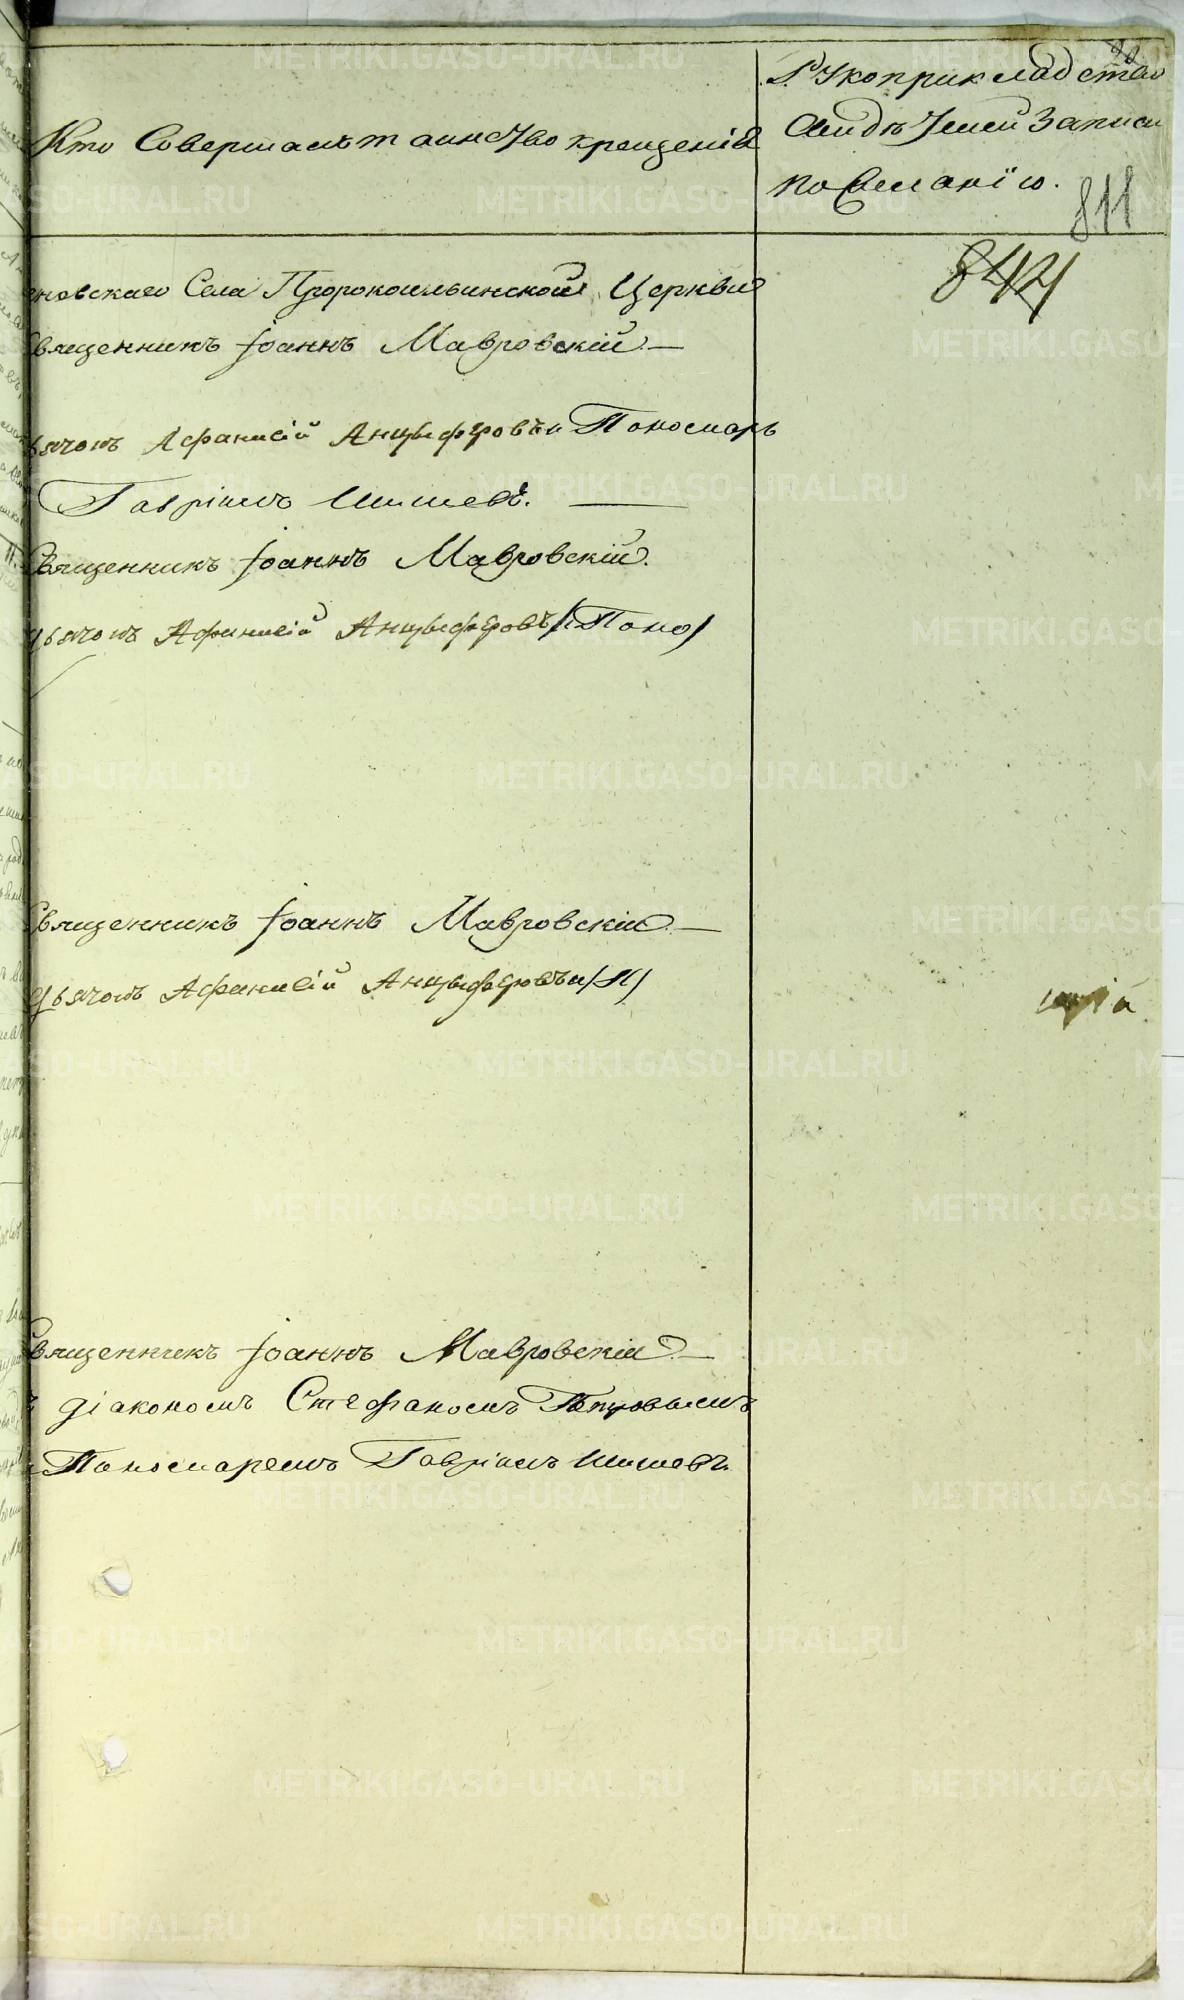 Кто Совершалъ таинство крещенія
Рукоприкладство
Свидѣтелей Записи
по Желанію.
811
844
новскаго Села Пророкоильинской Церкви
Священникъ Іоаннъ Мавровскій
дьячокъ Афанасій Анцыферовъ и Пономарь
Гавріилъ Шишевъ.
Священникъ Іоаннъ Мавровскій.
дьячокъ Афанасій Анцыферовъ /и Поно/
Священникъ Іоаннъ Мавровскій
дьячокъ Афанасій Анцыферовъ и /П/
Священникъ Іоаннъ Мавровскій
діакономъ Стефаномъ Петровымъ
Пономаремъ Гавріилъ Шишевъ
METRIKI.GASO-URAL.RU